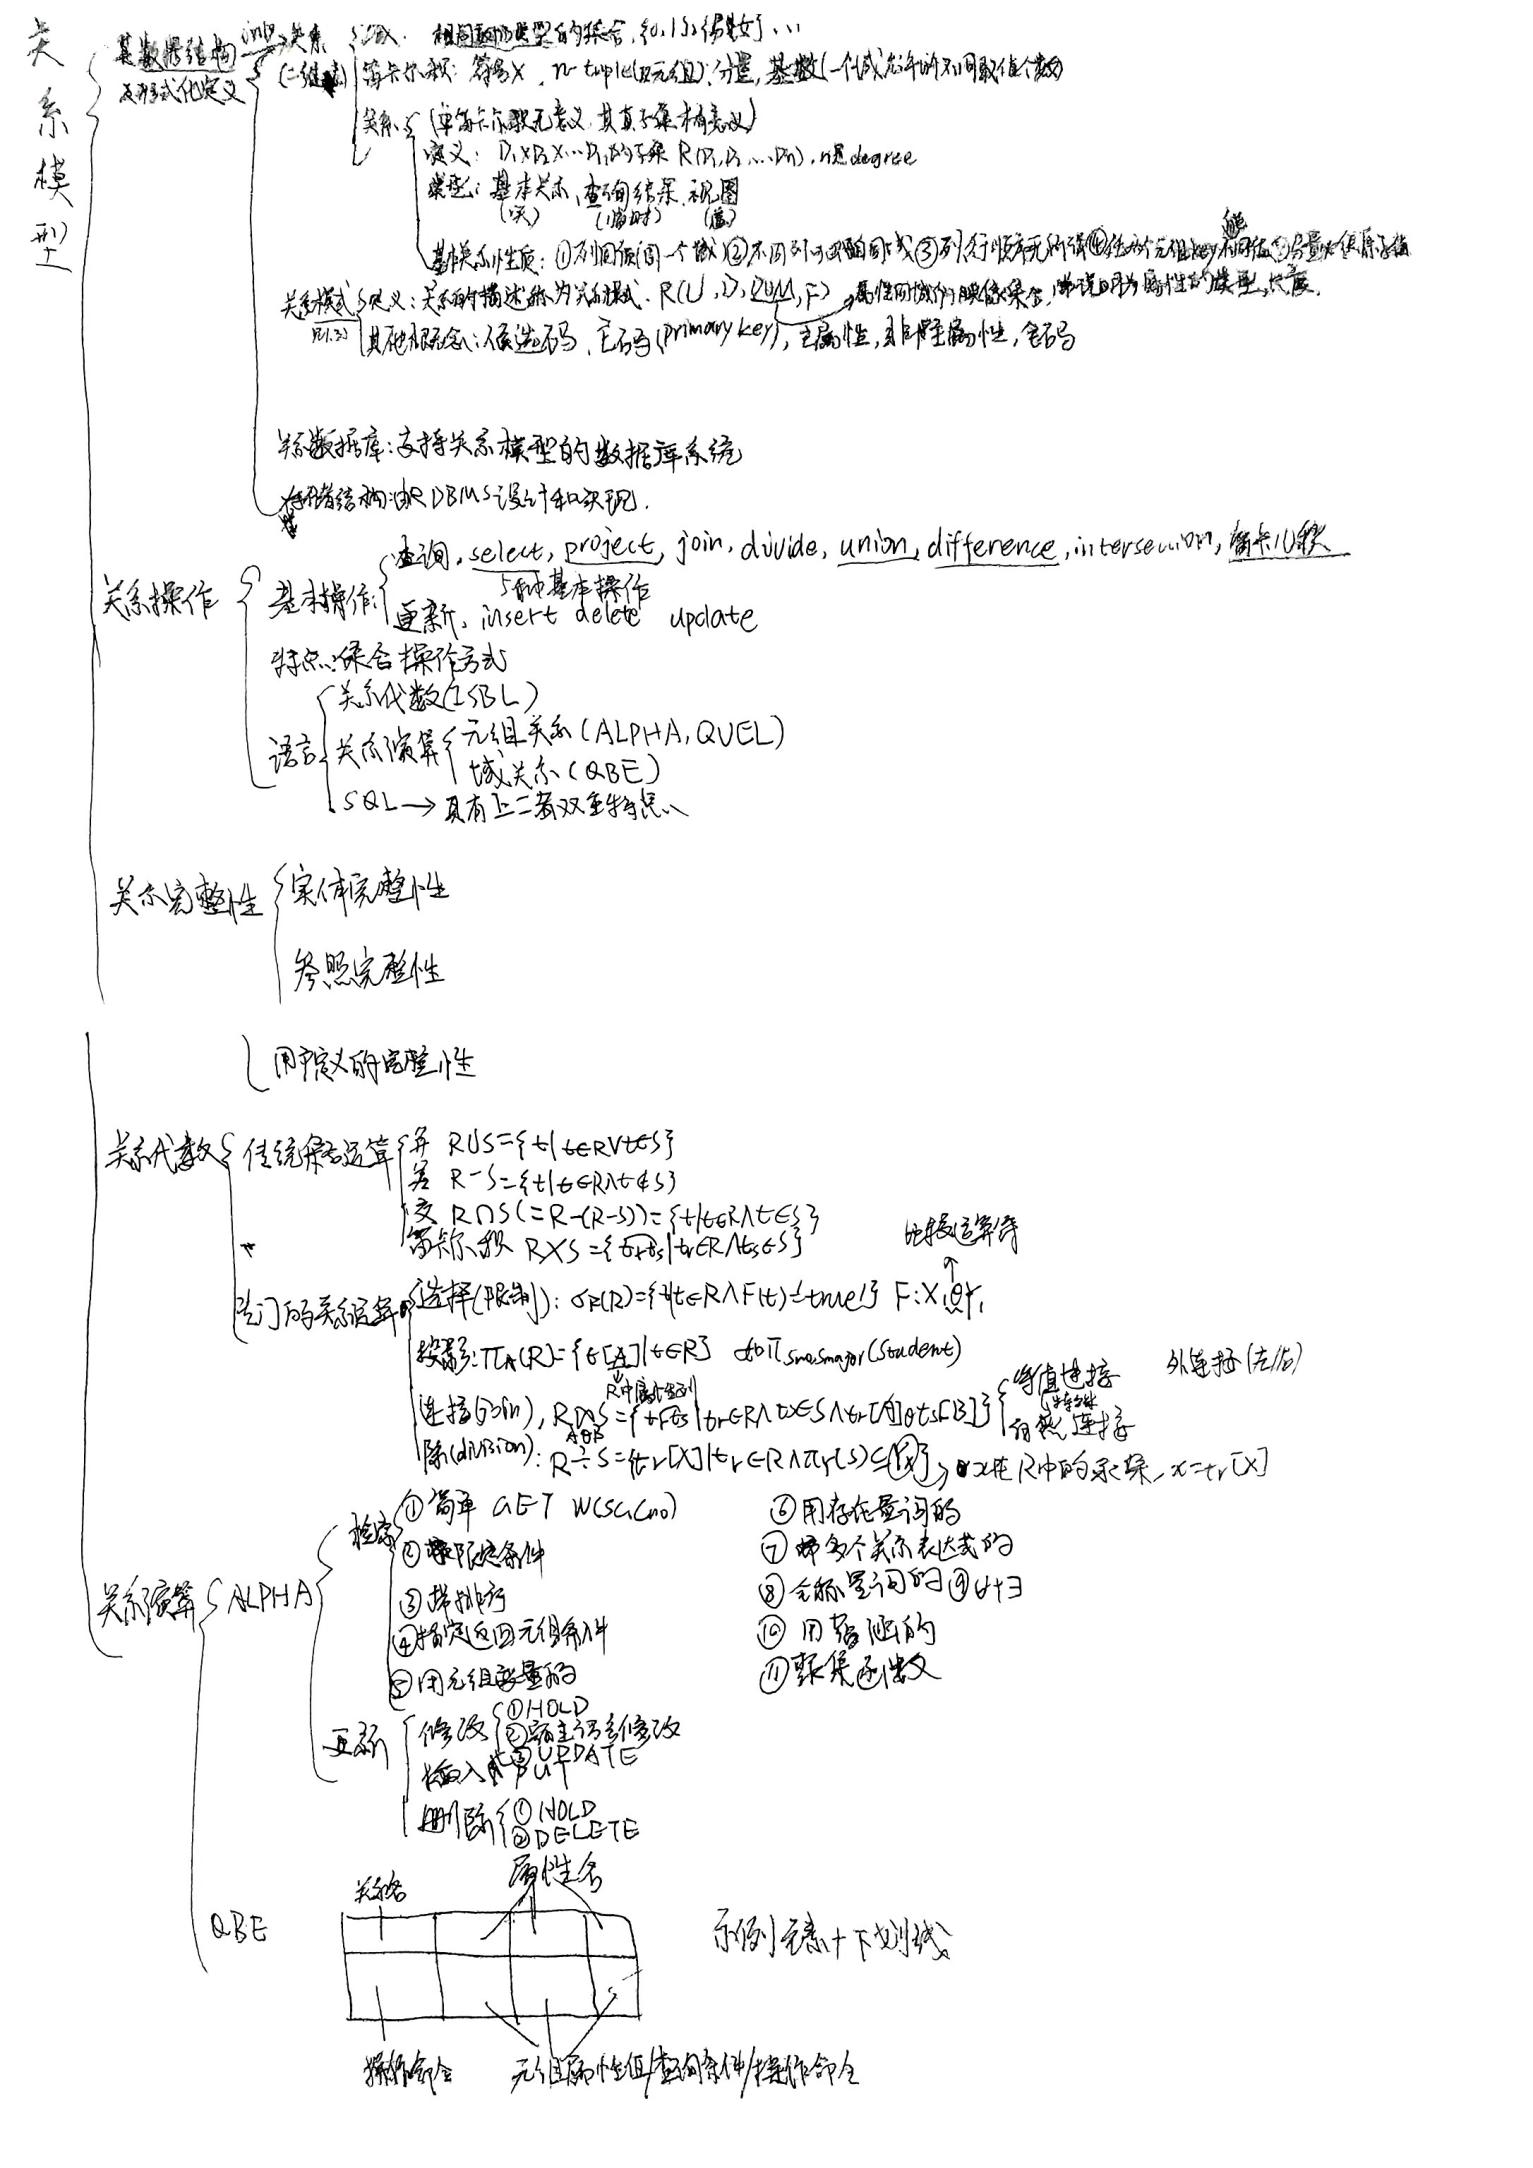 关系模型
其数据结构及形式化定义
关系(二维表)
域: 相同数据类型的集合,{0,1},{偶数}...
笛卡尔积: 符号X, n-tuple(n元组),分量,基数(一个域允许的不同取值个数)
关系
(单笛卡尔积无意义,其真子集才有意义)
定义: D₁×D₂×...Dₙ的子集 R(D₁,D₂,...Dn), n是degree
类型: 基本关系、查询结果、视图
(实) (临时) (虚)
基本关系性质: ①列同质(同一个域) ②不同列可出自同域 ③列,行顺序无所谓
关系模式
定义: 关系的描述称为关系模式. R(U,D,DOM,F) 属性向域的映像集合,常说明为属性的类型,长度.
其他概念: 候选码、主码(primary key), 主属性,非主属性,全码
关系数据库:支持关系模型的数据库系统
存储结构:由RDBMS设计和实现.
关系操作
基本操作:
查询. select, project, join, divide, union, difference, intersection, 笛卡儿积
5种基本操作
更新. insert delete update
特点:集合操作方式
语言
关系代数(ISBL)
关系演算
元组关系(ALPHA,QUEL)
域关系(QBE)
SQL→具有上二者双重特点
关系完整性
实体完整性
参照完整性
用户定义的完整性
关系代数
传统集合运算
并 R∪S={t|t∈R∨t∈S}
差 R-S={t|t∈R∧t∉S}
交 R∩S(=R-(R-S))={t|t∈R∧t∈S}
笛卡尔积 R×S={tr ts|tr∈R∧ts∈S}
比较运算符
专门的关系运算
选择(限制): σF(R)={t|t∈R∧F(t)=true} F:X₁θY₁
投影:πA(R)={t[A]|t∈R} πsno,smajor(Student)
R中属性列
连接(join), R⋈S={tr ts|tr∈R∧ts∈S∧tr[A]θts[B]}
AθB
等值连接
自然连接
外连接(左/右)
除(division): R÷S={tr[X]|tr∈R∧πY(S)⊆Yx} x在R中的象集, x=tr[X]
关系演算
ALPHA
检索
①简单 GET W(SC.Cno)
②带限定条件
③带排序
④指定返回元组条件
⑤用元组变量的
⑥用存在量词的
⑦带多个关系表达式的
⑧全称量词的 ⑨∀+∃
⑩用蕴涵的
⑪聚集函数
更新
修改
①HOLD
②宿主语言修改
③UPDATE
插入 PUT
删除
①HOLD
②DELETE
QBE
关系名
属性名
示例元素+下划线
操作命令
元组属性值/查询条件/操作命令